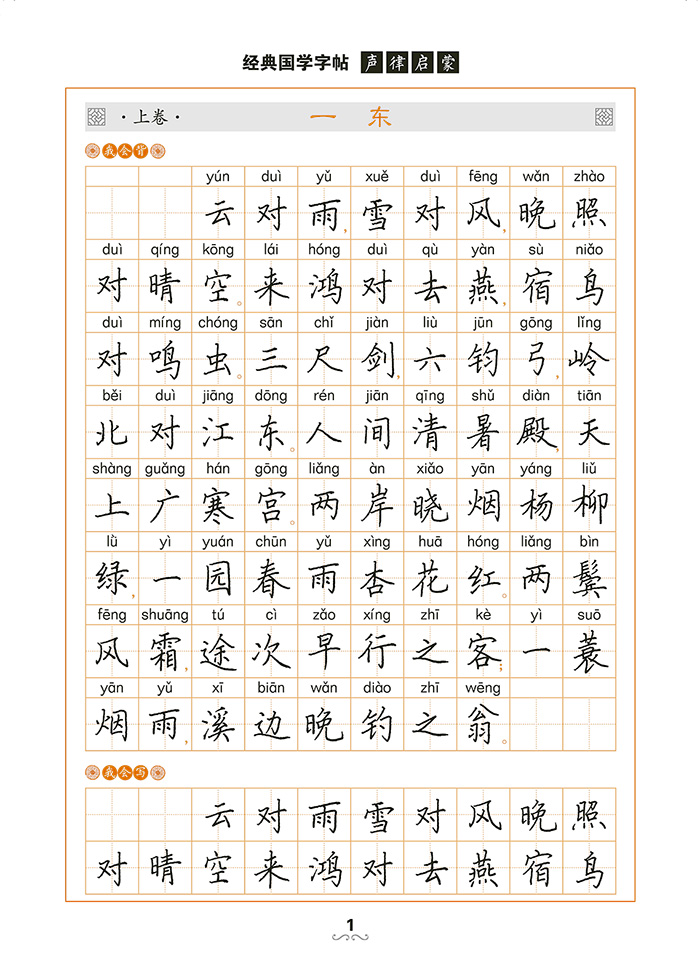 经典国学字帖 声律启蒙
·上卷· 一 东
我会背
yún duì yǔ xuě duì fēng wǎn zhào
云对雨,雪对风,晚照
duì qíng kōng lái hóng duì qù yàn sù niǎo
对晴空。来鸿对去燕,宿鸟
duì míng chóng sān chǐ jiàn liù jūn gōng lǐng
对鸣虫。三尺剑,六钧弓,岭
běi duì jiāng dōng rén jiān qīng shǔ diàn tiān
北对江东。人间清暑殿,天
shàng guǎng hán gōng liǎng àn xiǎo yān yáng liǔ
上广寒宫。两岸晓烟杨柳
lǜ yì yuán chūn yǔ xìng huā hóng liǎng bìn
绿,一园春雨杏花红。两鬓
fēng shuāng tú cì zǎo xíng zhī kè yì suō
风霜,途次早行之客;一蓑
yān yǔ xī biān wǎn diào zhī wēng
烟雨,溪边晚钓之翁。
我会写
云对雨雪对风晚照
对晴空来鸿对去燕宿鸟
1